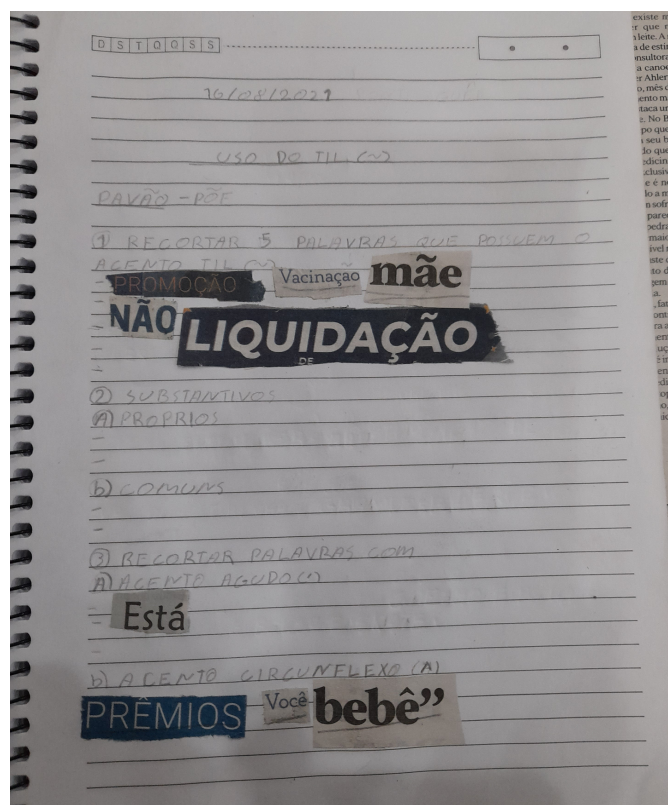 D S T Q Q S S
16/08/2021
USO DO TIL (~)
PAVÃO - PÕE
① RECORTAR 5 PALAVRAS QUE POSSUEM O
ACENTO TIL (~)
PROMOÇÃO Vacinação mãe
NÃO LIQUIDAÇÃO
DE
② SUBSTANTIVOS
A) PROPRIOS
b) COMUNS
③ RECORTAR PALAVRAS COM
A) ACENTO AGUDO (´)
Está
b) ACENTO CIRCUNFLEXO (^)
PRÊMIOS Você bebê”